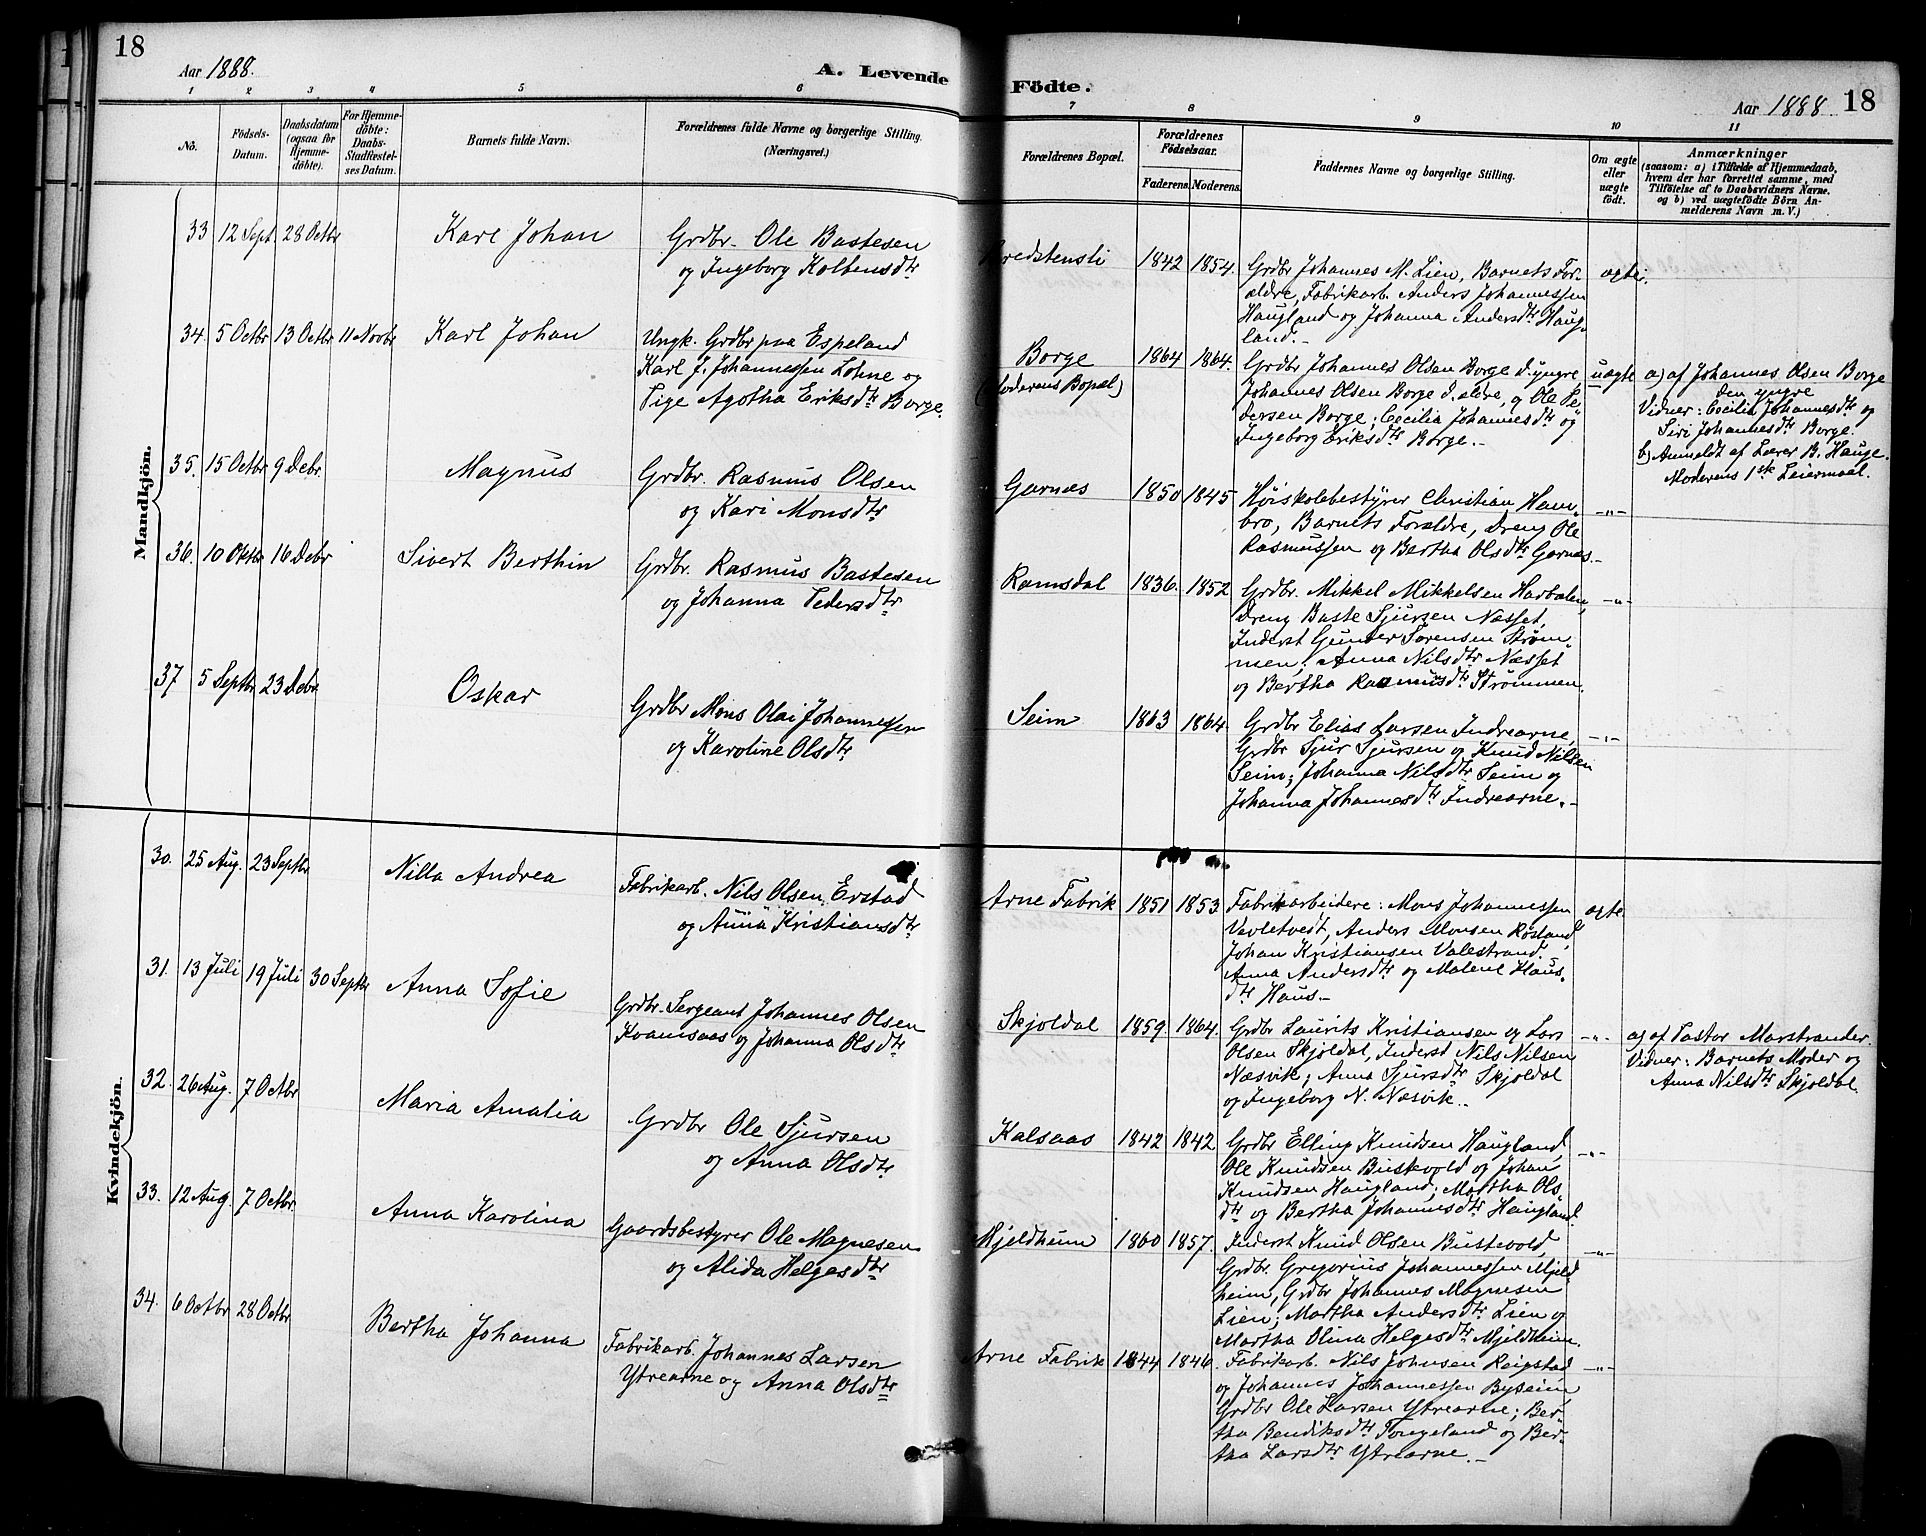 18
Aar 1888.
A. Levende
1 2 3 4 5 6
Nô.
Födsels-
Datum.
Daabsdatum
(ogsaa for
Hjemme-
döbte).
For Hjemme-
döbte:
Daabs-
Stadfæstel-
ses Datum.
Barnets fulde Navn.
Forældrenes fulde Navne og borgerlige Stilling.
(Næringsvei.)
Mandkjön.
33 12 Sept. 28 Octbr Karl Johan Grdbr. Ole Bastesen
og Ingeborg Koltensdtr
34. 5 Octbr 13 Octbr 11 Novbr Karl Johan Ungk. Grdbr paa Espeland
Karl J. Johannessen Lohne og
Pige Agotha Eriksdtr Borge.
35. 15 Octbr 9 Debr. Magnus Grdbr. Rasmus Olsen
og Kari Monsdtr
36. 10 Oktbr 16 Debr Sivert Berthin Grdbr. Rasmus Bastesen
og Johanna Pedersdtr
37 5 Septbr 23 Debr. Oskar Grdbr Mons Olai Johannessen
og Karoline Olsdtr
Kvindekjön.
30. 25 Aug. 23 Septbr Nilla Andrea Fabrikarb. Nils Olsen Erstad
og Anna Kristiansdtr
31. 13 Juli 19 Juli 30 Septbr Anna Sofie Grdbr. Sergeant Johannes Olsen
Kvamsaas og Johanna Olsdtr
32. 26 Aug. 7 Octbr Maria Amalia Grdbr Ole Sjursen
og Anna Olsdtr
33. 12 Aug. 7 Octbr. Anna Karolina Gaardsbestyrer Ole Magnesen
og Alida Helgesdtr
34. 6 Octbr 28 Octbr Bertha Johanna Fabrikarb. Johannes Larsen
Ytrearne og Anna Olsdtr
Födte.
Aar 1888 18
7 8 9 10 11
Forældrenes Bopæl.
Forældrenes
Födselsaar.
Faderens. Moderens.
Faddernes Navne og borgerlige Stilling.
Om ægte
eller
uægte
födt.
Anmærkninger
(saasom: a) i Tilfælde af Hjemmedaab,
hvem der har forrettet samme, med
Tilföielse af to Daabsvidners Navne,
og b) ved uægtefödte Börn An-
melderens Navn m. V.)
Bredstensli 1842 1854. Grdbr Johannes M. Lien, Barnets For- ægte.
ældre, Fabrikarb. Anders Johannessen
Haugland og Johanna Andersdtr Haug-
land.-
Borge 1864 1864. Grdbr Johannes Olsen Borge d. yngre, uægte a) af Johannes Olsen Borge
(Moderens Bopæl) Johannes Olsen Borge d. ældre, og Ole Pe- den yngre
dersen Borge; Cecilia Johannesdtr og Vidner: Cecilia Johannesdtr og
Ingeborg Eriksdtr Borge.- Siri Johannesdtr Borge.
b) Anmeldt af Lærer B. Hauge.
Moderens 1ste Leiermaal.
Garnæs 1850 1845 Høiskolebestyrer Christian Ham- -"-
bro, Barnets Forældre, Dreng Ole
Rasmussen og Bertha Olsdtr Garnæs.-
Ramsdal 1836. 1852 Grdbr. Mikkel Mikkelsen Harbalen, -"-
Dreng Baste Sjursen Næsset,
Inderst Gunder Sørensen Strøm-
men; Anna Nilsdtr Næsset
og Bertha Rasmusdtr Strømmen.
Seim 1863 1864. Grdbr Elias Larsen Indrearne, -"-
Grdbr Sjur Sjursen og Knud Nilsen
Seim; Johanna Nilsdtr Seim og
Johanna Johannesdtr Indrearne.-
Arne Fabrik 1851 1853 Fabrikarbeidere: Mons Johannessen ægte
Vavletvedt, Anders Monsen Røsland,
Johan Kristiansen Valestrand.
Anna Andersdtr og Malene Haus-
dtr Haus.-
Skjoldal 1859. 1864. Grdbr Laurits Kristiansen og Lars -"- a) af Pastor Marstrander.
Olsen Skjoldal, Inderst Nils Nilsen Vidner: Barnets Moder og
Næsvik; Anna Sjursdtr Skjoldal Anna Nilsdtr Skjoldal.
og Ingeborg N. Næsvik.-
Kalsaas 1842 1842 Grdbr Elling Knudsen Haugland, -"-
Ole Knudsen Bustevold og Johan
Knudsen Haugland; Martha Ols-
dtr og Bertha Johannesdtr Haugland.
Mjeldheim 1860 1857 Inderst Knud Olsen Bustevold, -"-
Grdbr. Gregorius Johannessen Mjeld-
heim, Grdbr Johannes Magnesen
Lien; Martha Andersdtr Lien og
Martha Olina Helgesdtr Mjeldheim.
Arne Fabrik 1844 1846. Fabrikarb. Nils Johnsen Reigstad -"-
og Johannes Johannessen Byseim,
Grdbr Ole Larsen Ytrearne; Ber-
tha Bendiksdtr Tongeland og Ber-
tha Larsdtr Ytrearne.-